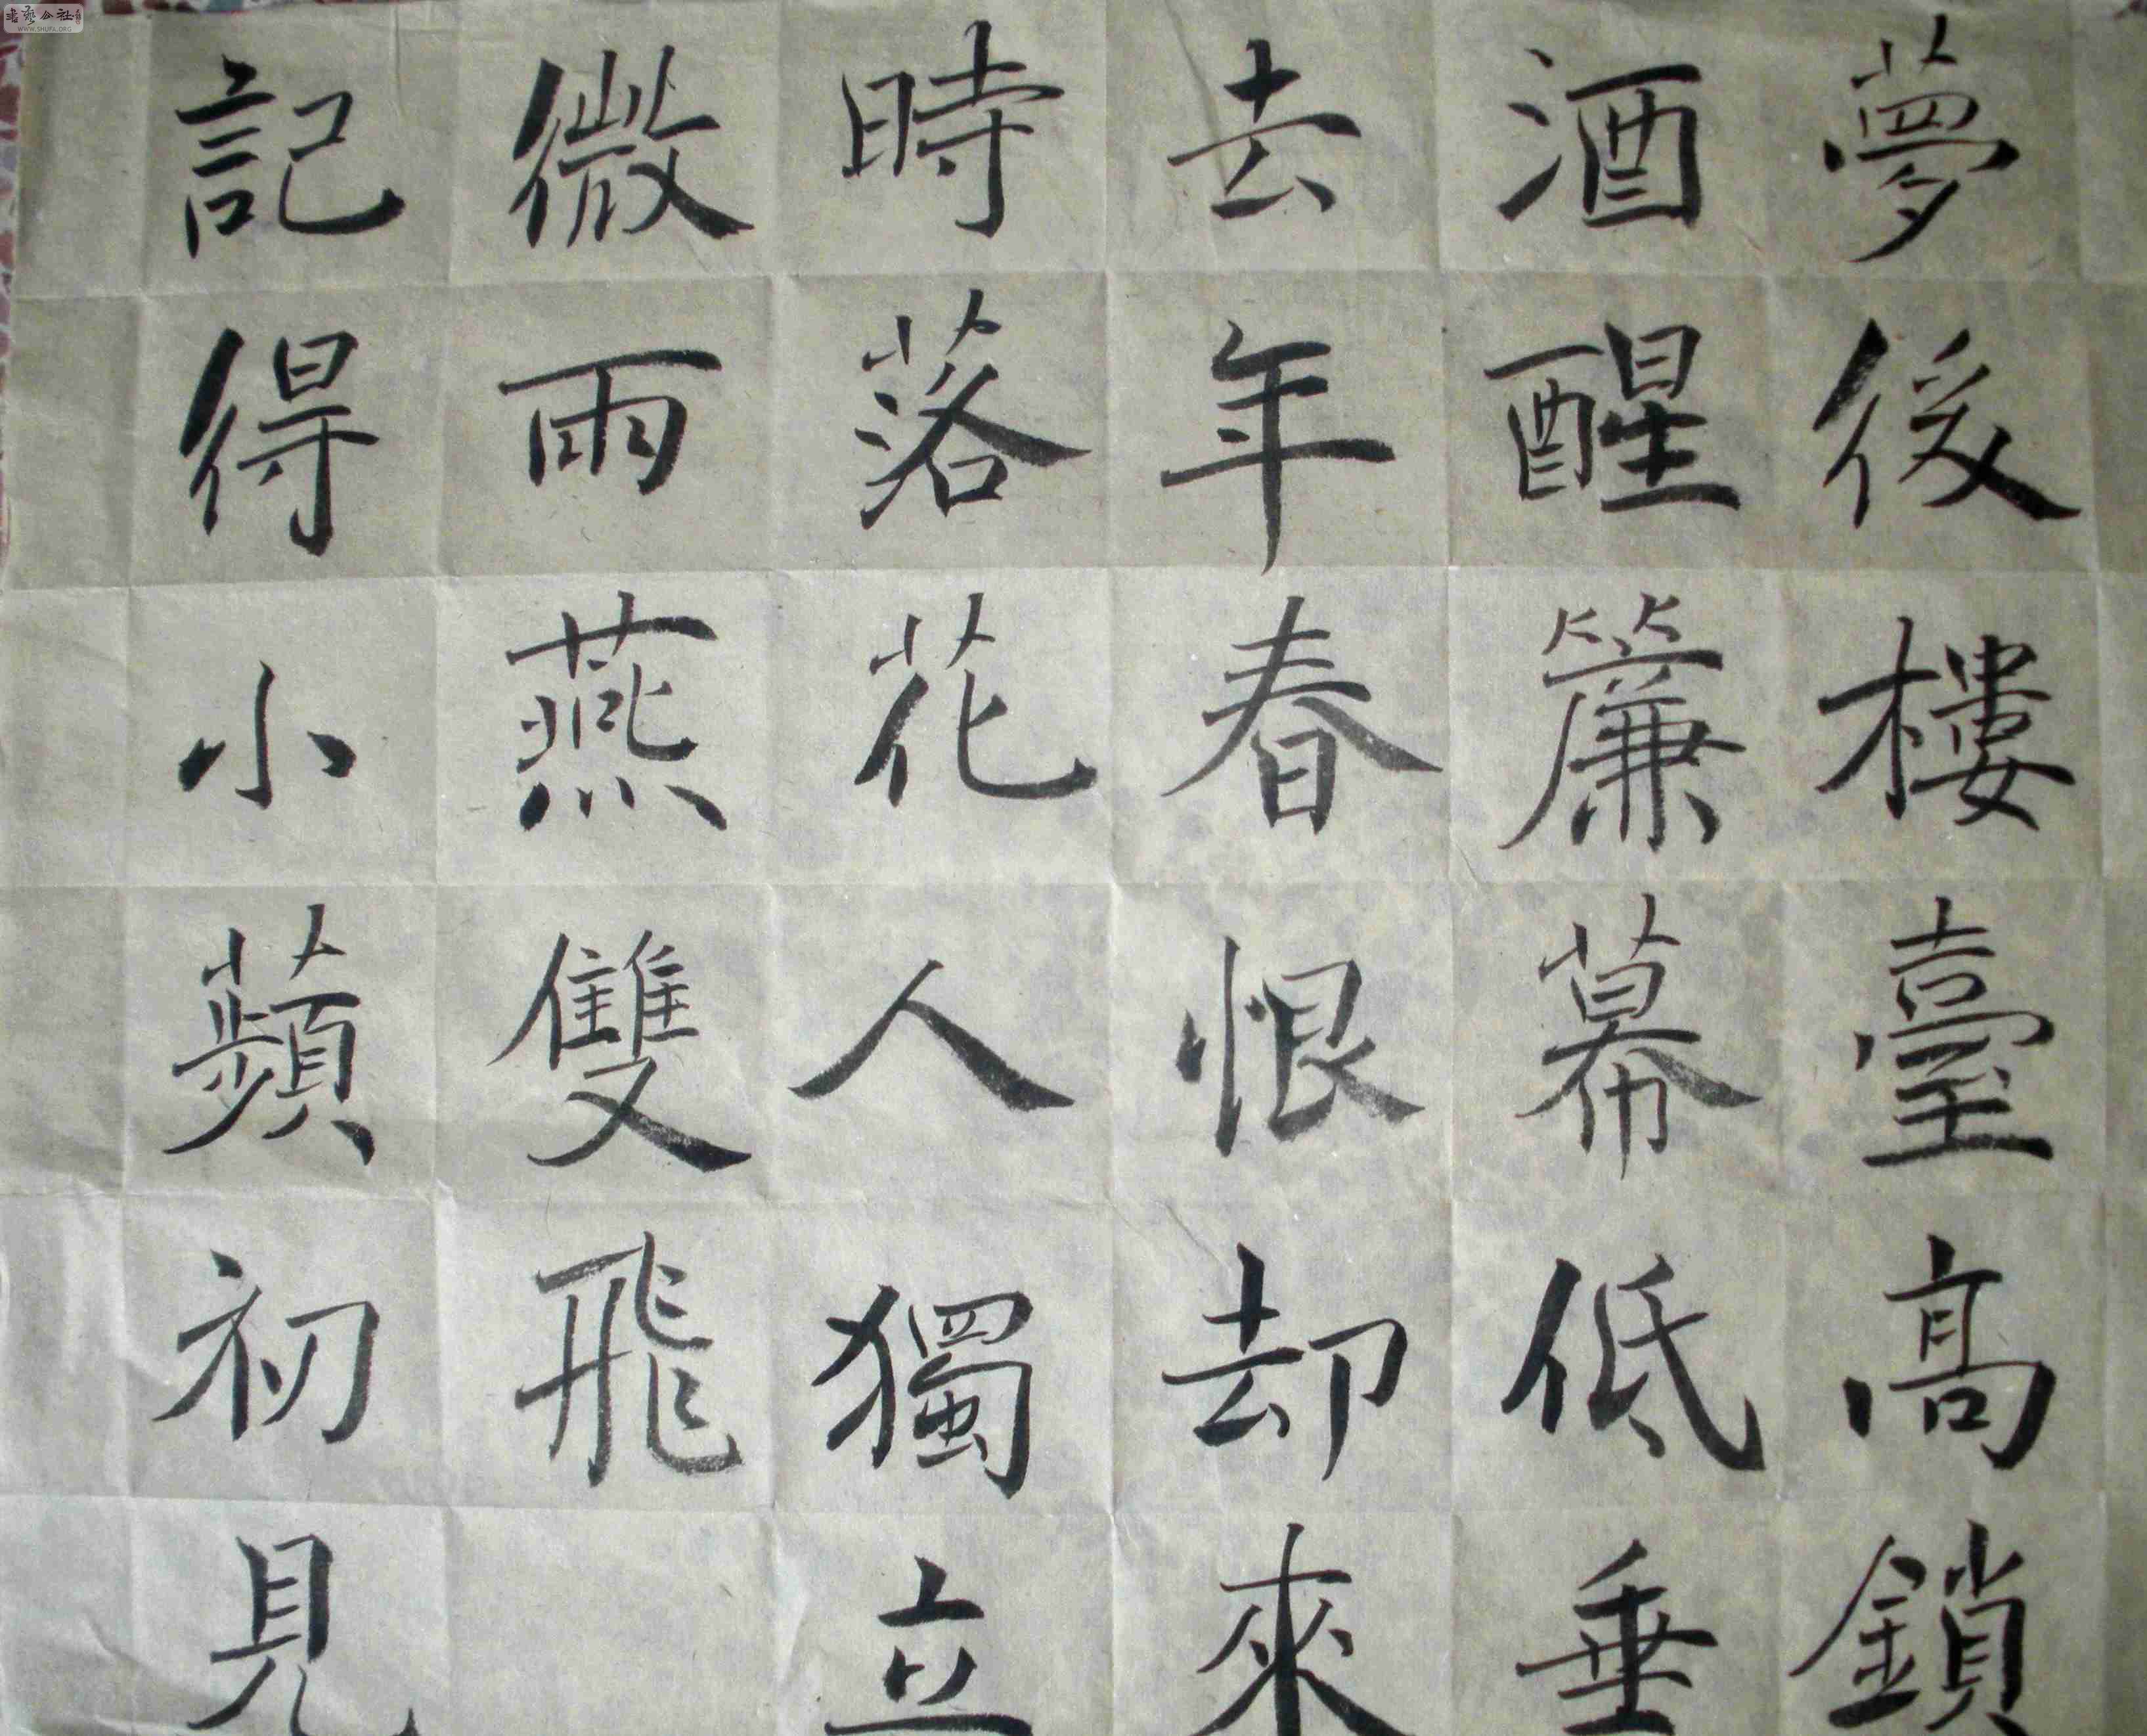 夢後樓臺高鎖
酒醒簾幕低垂
去年春恨却來
時落花人獨立
微雨燕雙飛
記得小蘋初見
WWW.SHUFA.ORG